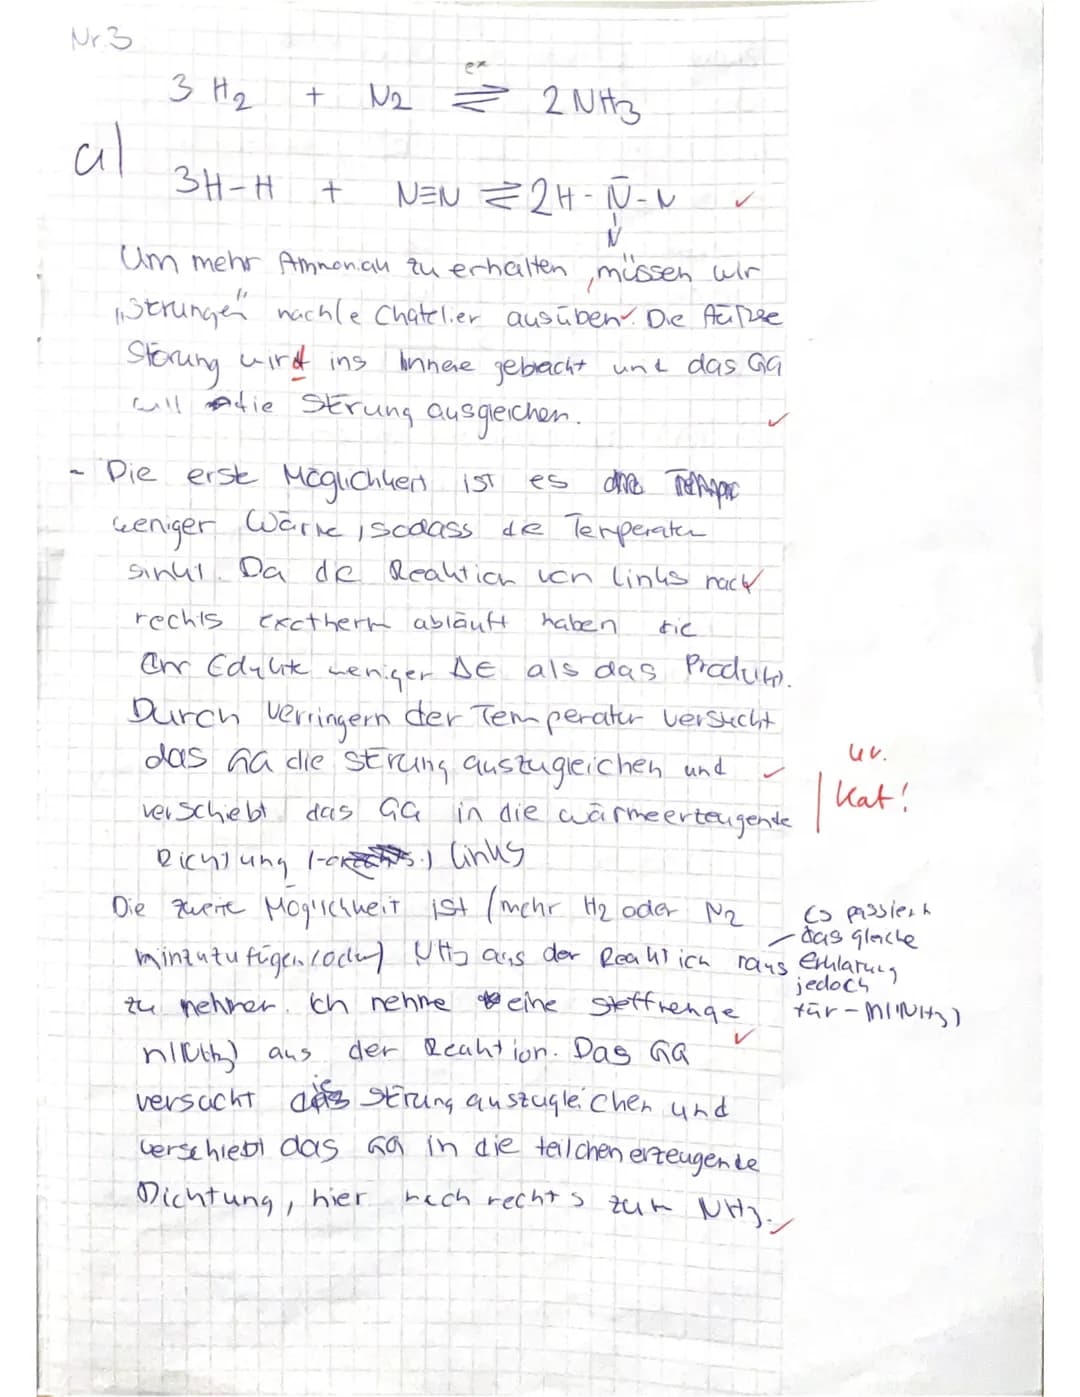 Nr.3
ex
3 H2 + N2 ⇌ 2 NH3
a)
3H-H + N≡N ⇌ 2H-N̄-N ✓
N
Um mehr Ammoniak zu erhalten, müssen wir
„Störungen" nach le Chatelier ausüben✓. Die Äußee
Störung wird ins Innere gebracht und das GG
will die Störung ausgleichen. ✓
- Die erste Möglichkeit ist es
weniger Wärme, sodass die Temperatur
sinkt. Da die Reaktion von links nach
rechts exotherm abläuft haben die
Edukte weniger ΔE als das Produkt.
Durch verringern der Temperatur versucht
das GG die Störung auszugleichen und ✓
verschiebt das GG in die wärmeerzeugende
Richtung links
uv.
Kat!
Die zweite Möglichkeit ist (mehr H2 oder N2
hinzuzufügen/oder) NH3 aus der Reaktion raus
zu nehmen. Ich nehme eine Stoffmenge
n(NH3) aus der Reaktion. Das GG ✓
versucht die Störung auszugleichen und
verschiebt das GG in die teilchenerzeugende
Richtung, hier nach rechts zum NH3. ✓
Es passiert
das gleiche
Erklärung
jedoch
für - n(NH3)